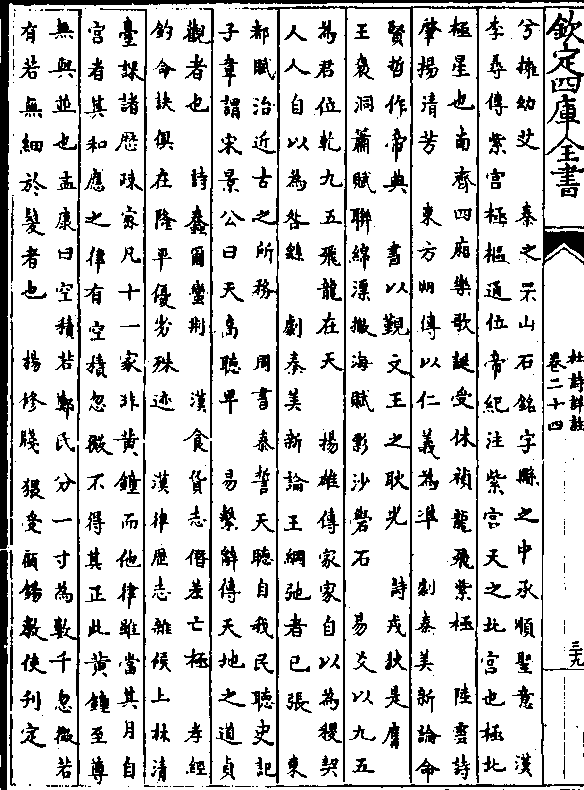 欽定四庫全書
杜詩詳註
卷二十四
三十九
兮擁幼艾　秦之罘山石銘字縣之中承順聖意　漢
李尋傳紫宮極樞通位帝紀注紫宮天之北宮也極北
極星也南齊四廂樂歌誕受休禎龍飛紫極　陸雲詩
肇揚清芳　東方朔傳以仁義為準　劇秦美新論命
賢哲作帝典　書以覲文王之耿光　詩戎狄是膺
王褒洞簫賦聯綿漂撇海賦影沙礐石　易爻以九五
為君位乾九五飛龍在天　揚雄傳家家自以為稷契
人人自以為咎繇　劇秦美新論王綱弛者已張　東
都賦治近古之所務　周書泰誓天聽自我民聽史記
子韋謂宋景公曰天高聽卑　易繫辭傳天地之道貞
觀者也　詩蠢爾蠻荆　漢食貨志僭差亡極　孝經
鈞命訣俱在隆平優劣殊迹　漢律歷志雜候上林清
臺課諸歷疎家凡十一家非黄鐘而他律雖當其月自
宮者其和應之律有空積忽微不得其正此黄鐘至尊
無與並也孟康曰空積若鄭氏分一寸為數千忽微若
有若無細於髮者也　楊修牋猥受顧錫教使刋定